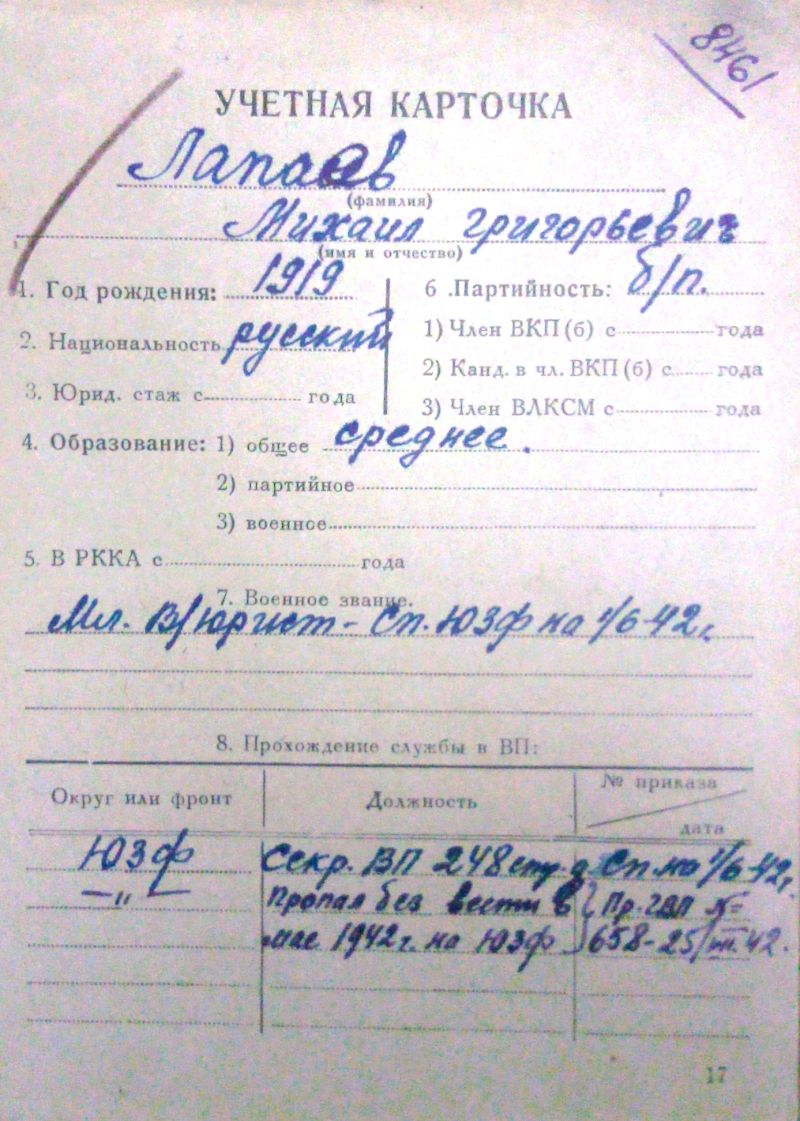 8461
УЧЕТНАЯ КАРТОЧКА
Лапаев
(фамилия)
Михаил Григорьевич
(имя и отчество)
1. Год рождения: 1919
2. Национальность русский
3. Юрид. стаж с года
4. Образование: 1) общее среднее.
2) партийное
3) военное
5. В РККА с года
6 .Партийность: б/п.
1) Член ВКП(б) с года
2) Канд. в чл. ВКП(б) с года
3) Член ВЛКСМ с года
7. Военное звание.
Мл. В/юрист - Сп. ЮЗФ на 1/6-42 г.
8. Прохождение службы в ВП:
Округ или фронт Должность № приказа
дата
ЮЗФ Секр. ВП 248 стр. д Сп. на 1/6-42 г.
—"— Пропал без вести в Пр. ГВП №
мае 1942 г. на ЮЗФ 658-25/VII.42.
17